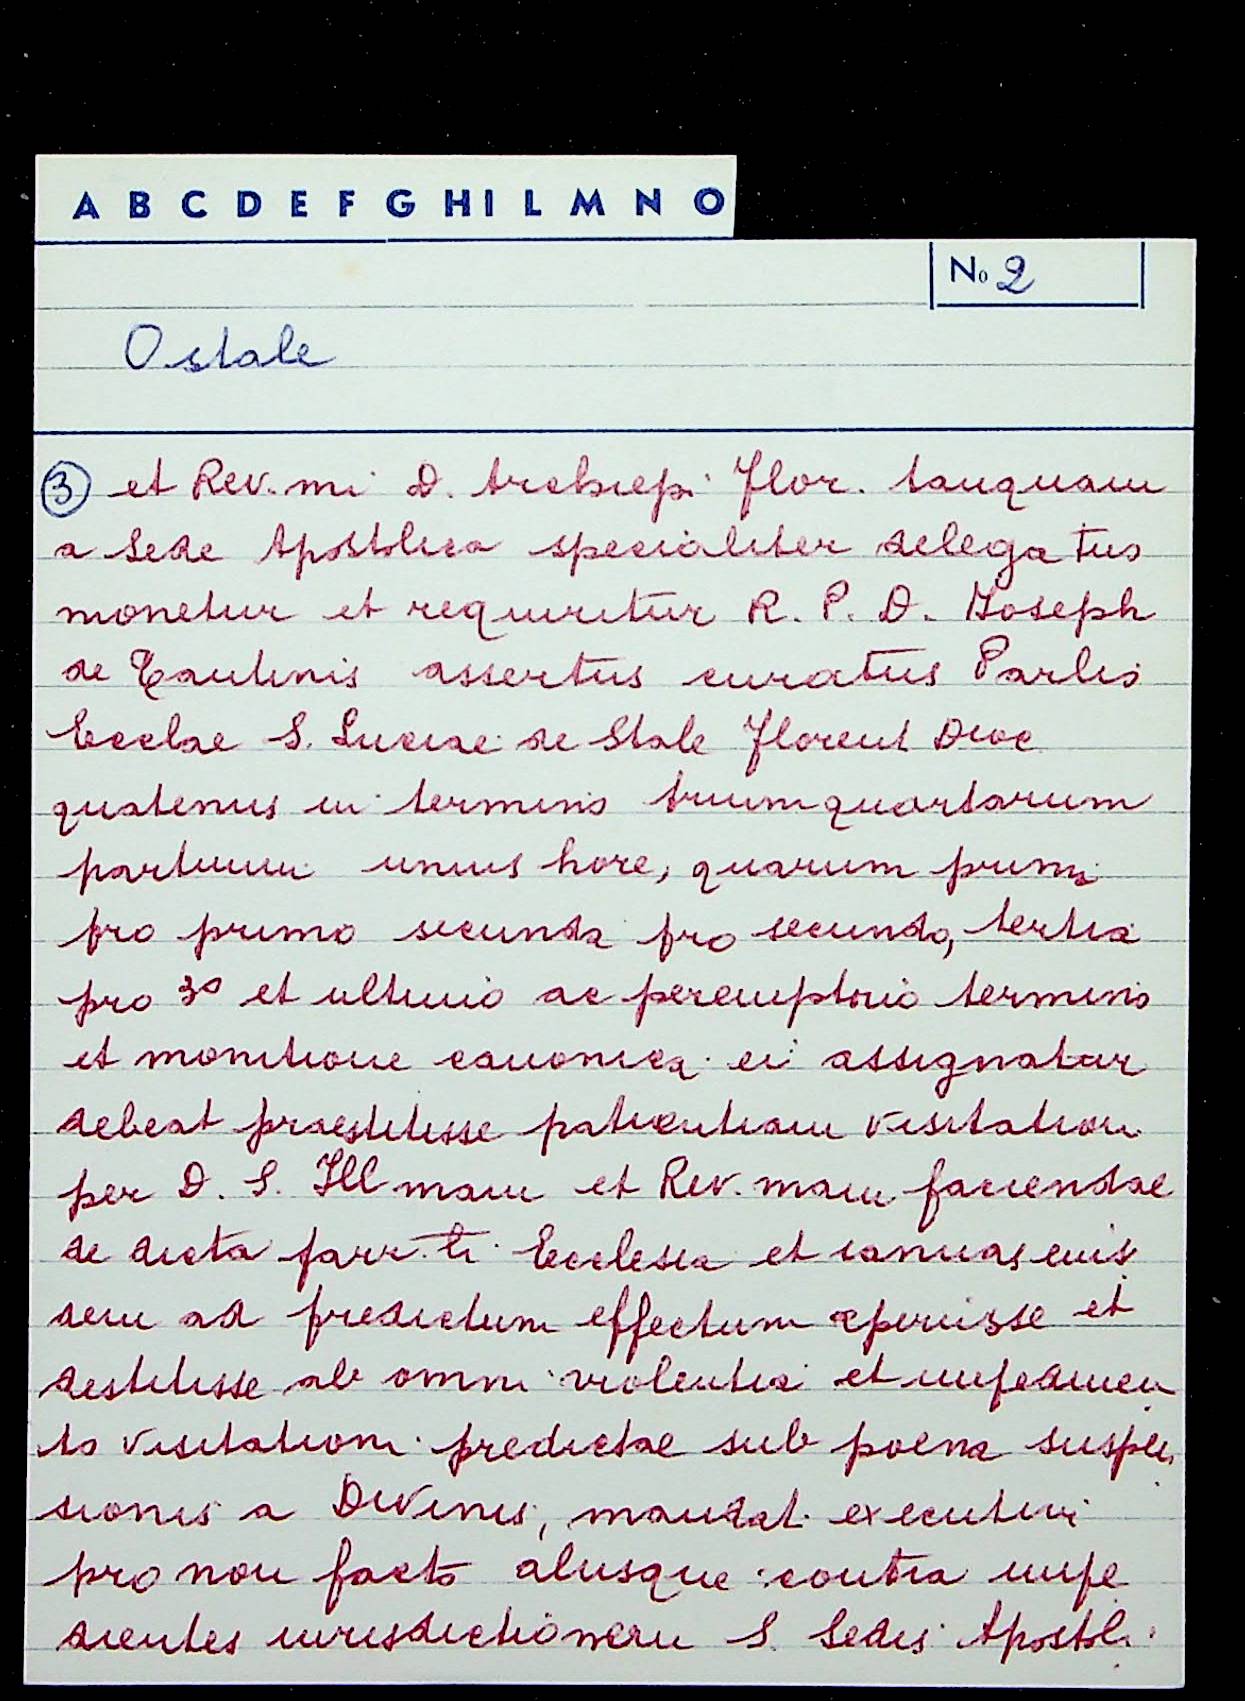 A B C D E F G H I L M N O
No 2
Ostale
3 et Rev.mi D. Archiepi Flor. tanquam
a Sede Apostolica specialiter delegatus
monetur et requiritur R. P. D. Joseph
de assertus curatus Parlis
Ecclae S. Luciae de Stale Florent Dioc
quatenus in termino trium quartarum
partium unius hore, quarum prima
pro primo secunda pro secundo, tertia
pro 3º et ultimio ac peremptorio termino
et monitione canonica ei assignatur
debeat praestitisse patientiam visitationi
per D. S. Illmam et Rev.mam faciendae
de dicta Ecclesia et ianuas eius
dem ad predictum effectum aperuisse et
destitisse ab omni violentia et impedimen
to visitationi predictae sub poena suspen
sionis a Divinis, mandat executivi
pro non facto aliisque contra impe
dientes iurisdictionem S. Sedis Apostoli